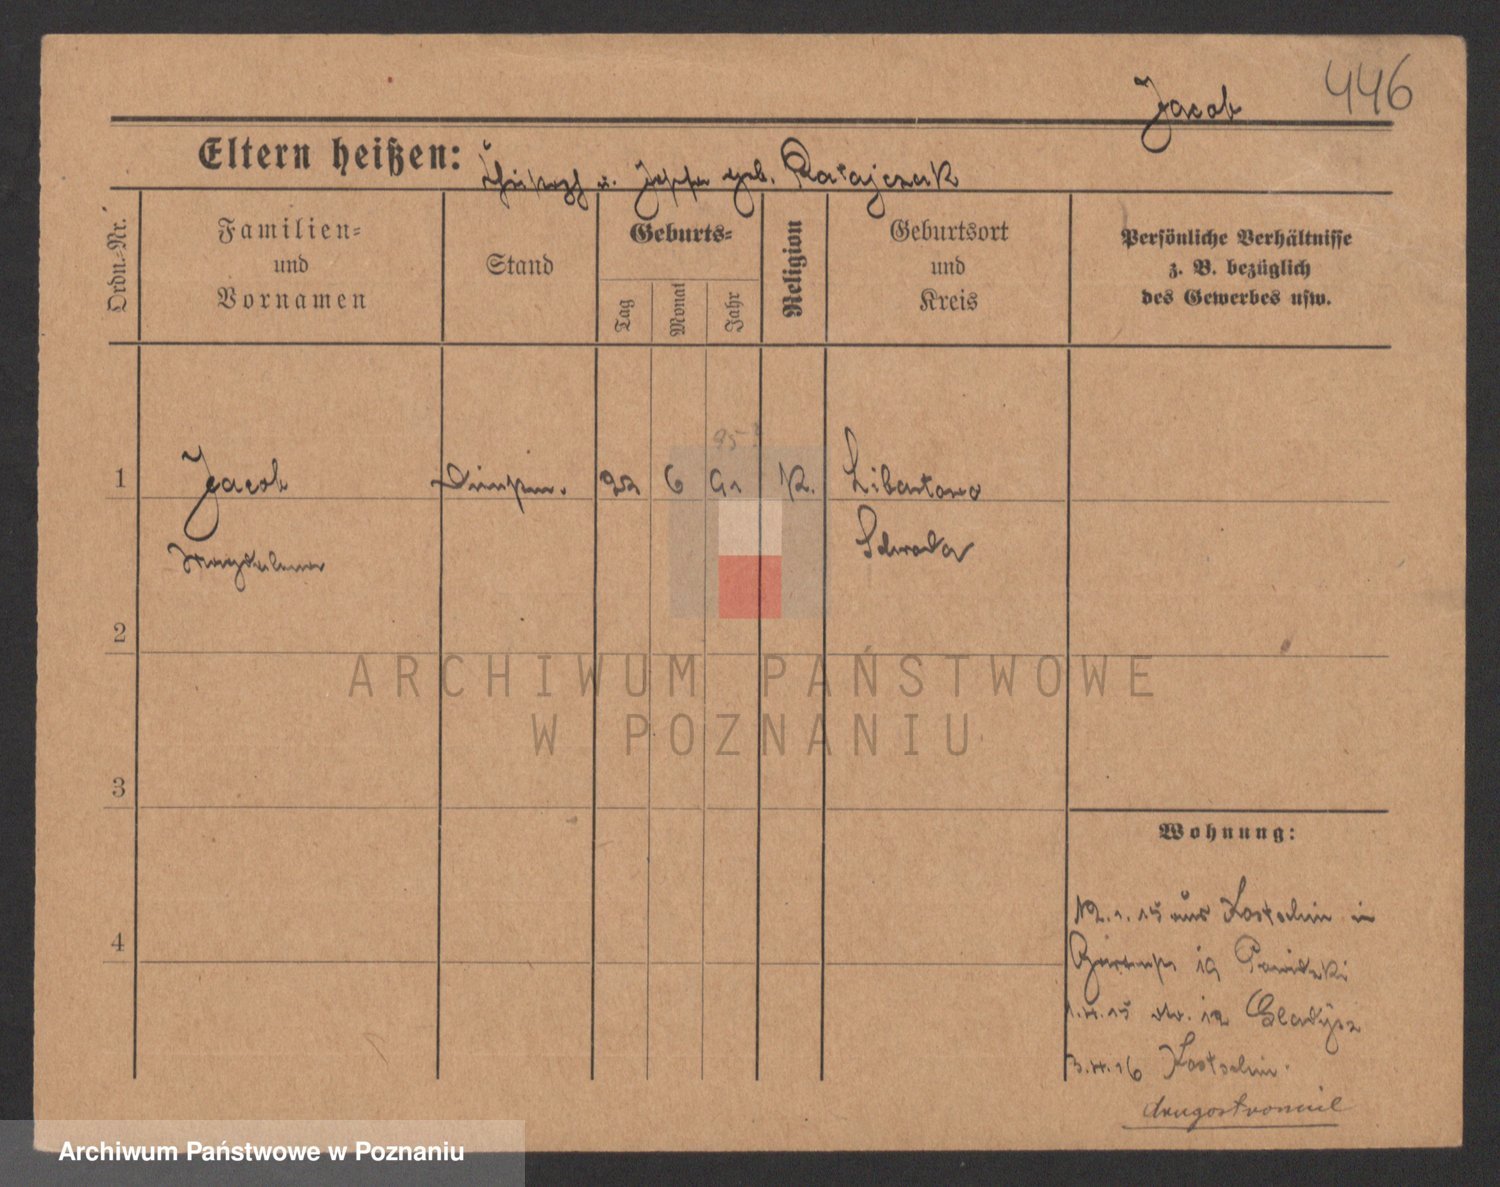 446
Jacob
Eltern heißen: u. Josepha geb. Ratajczak
Ordn.-Nr.
Familien-
und
Vornamen
Stand
Geburts-
Tag
Monat
Jahr
Religion
Geburtsort
und
Kreis
Persönliche Verhältnisse
z. B. bezüglich
des Gewerbes usw.
95?
1 Jacob 22 6 91 K. Libartowo
Magdalena Schroda
2
3
4
Wohnung:
12.1.15 aus Kostschin in
19
1.4.15 12 Gladysz
3.4.16 Kostschin.
drugostronnie
ARCHIWUM PAŃSTWOWE
W POZNANIU
Archiwum Państwowe w Poznaniu